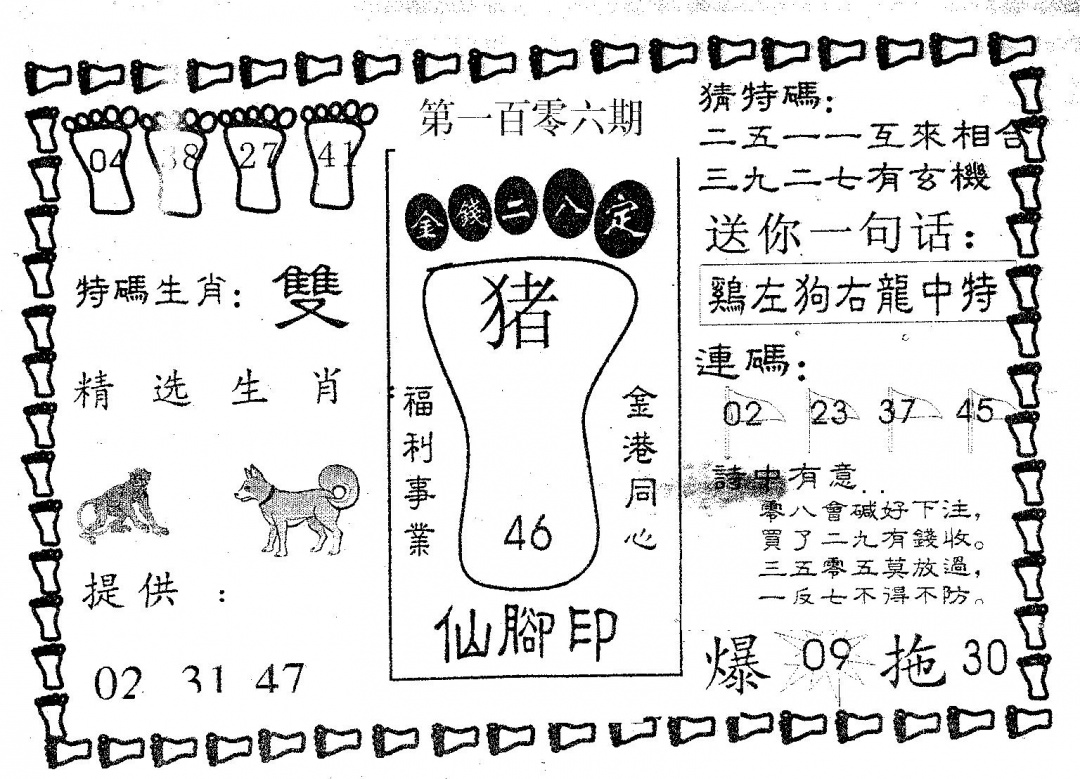 04 38 27 41
特碼生肖：雙
精选生肖
提供：
02 31 47
第一百零六期
金錢二八定
猪
46
福利事業
金港同心
仙腳印
猜特碼：
二五一一互來相合
三九二七有玄機
送你一句话：
鷄左狗右龍中特
連碼：
02 23 37 45
詩中有意..
零八會碱好下注，
買了二九有錢收。
三五零五莫放過，
一反七不得不防。
爆 09 拖 30